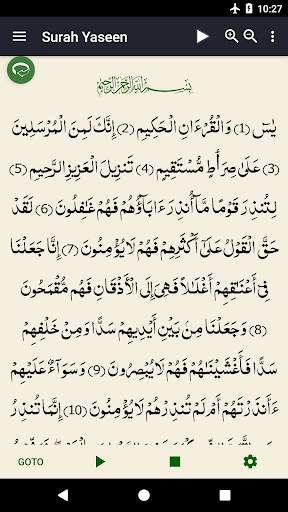 10:27
Surah Yaseen
بِسْمِ اللَّهِ الرَّحْمَٰنِ الرَّحِيمِ
يسٓ (1) وَالْقُرْءَانِ الْحَكِيمِ (2) إِنَّكَ لَمِنَ الْمُرْسَلِينَ
(3) عَلَىٰ صِرَٰطٍ مُّسْتَقِيمٍ (4) تَنزِيلَ الْعَزِيزِ الرَّحِيمِ (5)
لِتُنذِرَ قَوْمًا مَّآ أُنذِرَ ءَابَآؤُهُمْ فَهُمْ غَٰفِلُونَ (6) لَقَدْ
حَقَّ الْقَوْلُ عَلَىٰٓ أَكْثَرِهِمْ فَهُمْ لَا يُؤْمِنُونَ (7) إِنَّا جَعَلْنَا
فِىٓ أَعْنَٰقِهِمْ أَغْلَٰلًا فَهِىَ إِلَى الْأَذْقَانِ فَهُم مُّقْمَحُونَ
(8) وَجَعَلْنَا مِنۢ بَيْنِ أَيْدِيهِمْ سَدًّا وَمِنْ خَلْفِهِمْ
سَدًّا فَأَغْشَيْنَٰهُمْ فَهُمْ لَا يُبْصِرُونَ (9) وَسَوَآءٌ عَلَيْهِمْ
ءَأَنذَرْتَهُمْ أَمْ لَمْ تُنذِرْهُمْ لَا يُؤْمِنُونَ (10) إِنَّمَا تُنذِرُ
GOTO